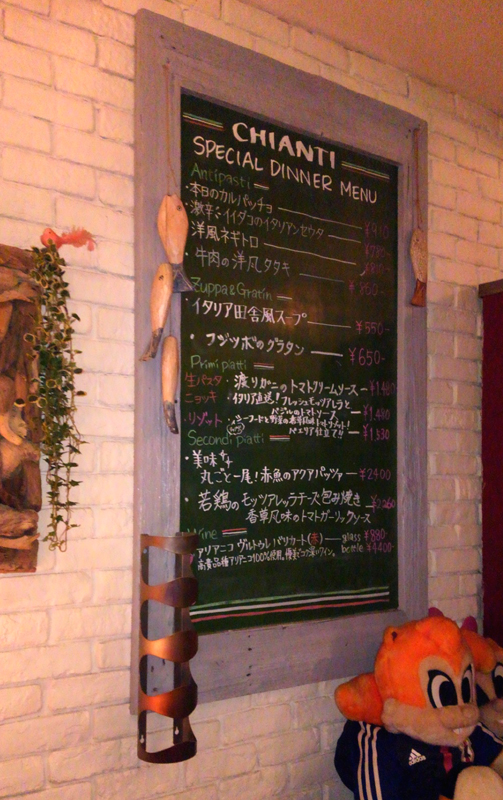 CHIANTI
SPECIAL DINNER MENU
Antipasti
・本日のカルパッチョ ¥910
・激辛!イイダコのイタリアンセウタ ¥780
・洋風ネギトロ
・牛肉の洋風タタキ ¥860-
Zuppa&Gratin
・イタリア田舎風スープ ¥550-
・フジツボのグラタン ¥650-
Primi piatti
生パスタ・渡りガニのトマトクリームソース
ニョッキ・イタリア直送!フレッシュモッツァレラと
バジルのトマトソース ¥1,480
・リゾット ・シーフードと野菜の
¥1,330
Secondi piatti
・美味
丸ごと一尾!赤魚のアクアパッツァ ¥2400
・若鶏のモッツアレッラチーズ包み焼き
香草風味のトマトガーリックソース
Wine
・アリアニコ ヴルトゥレ バリカート(赤) glass ¥880-
高貴品種アリアニコ100%使用。優美でコク深いワイン。 bottle ¥4400-
adidas